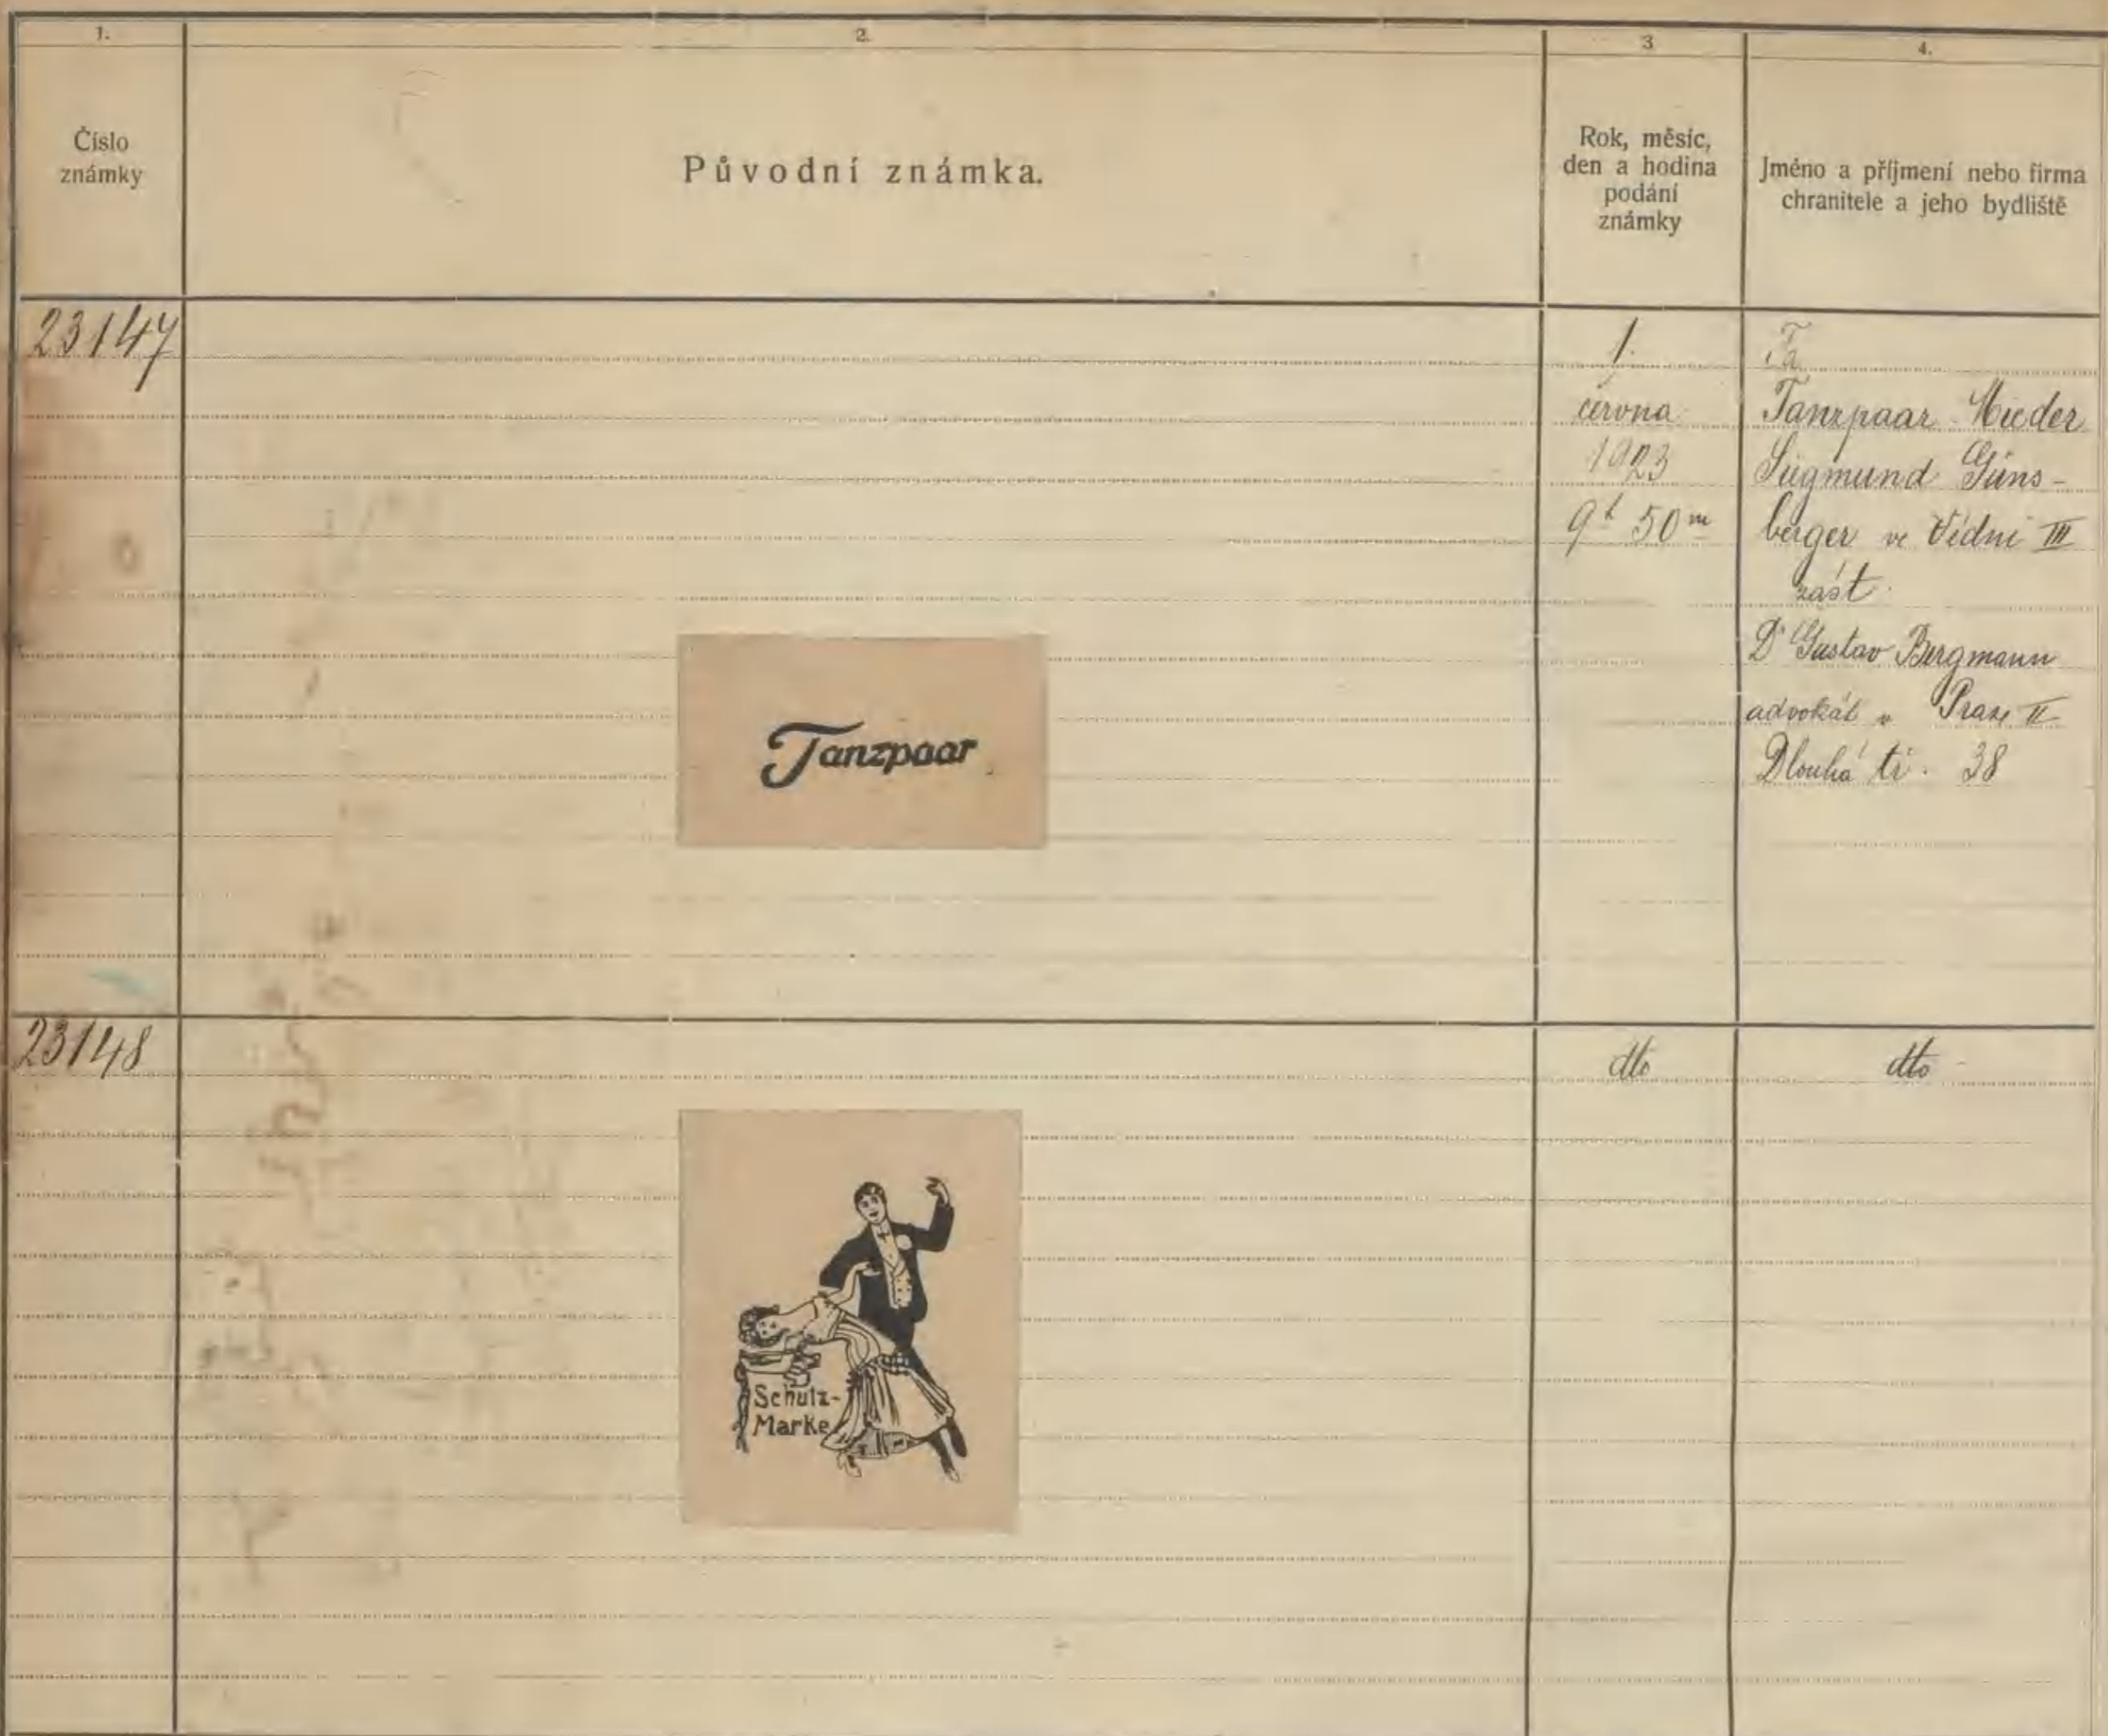 1.
2.
3
4.
Číslo
známky
Původní známka.
Rok, měsíc,
den a hodina
podání
známky
Jméno a příjmení nebo firma
chranitele a jeho bydliště
23147
1.
června
1923
9h 50m
Fa
Tanzpaar Mieder
Siegmund Güns-
berger ve Vídni III
zást.
Dr Gustav Bergmann
advokát v Praze II
Dlouhá tř. 38
Tanzpaar
23148
dto
dto
Schutz-
Marke